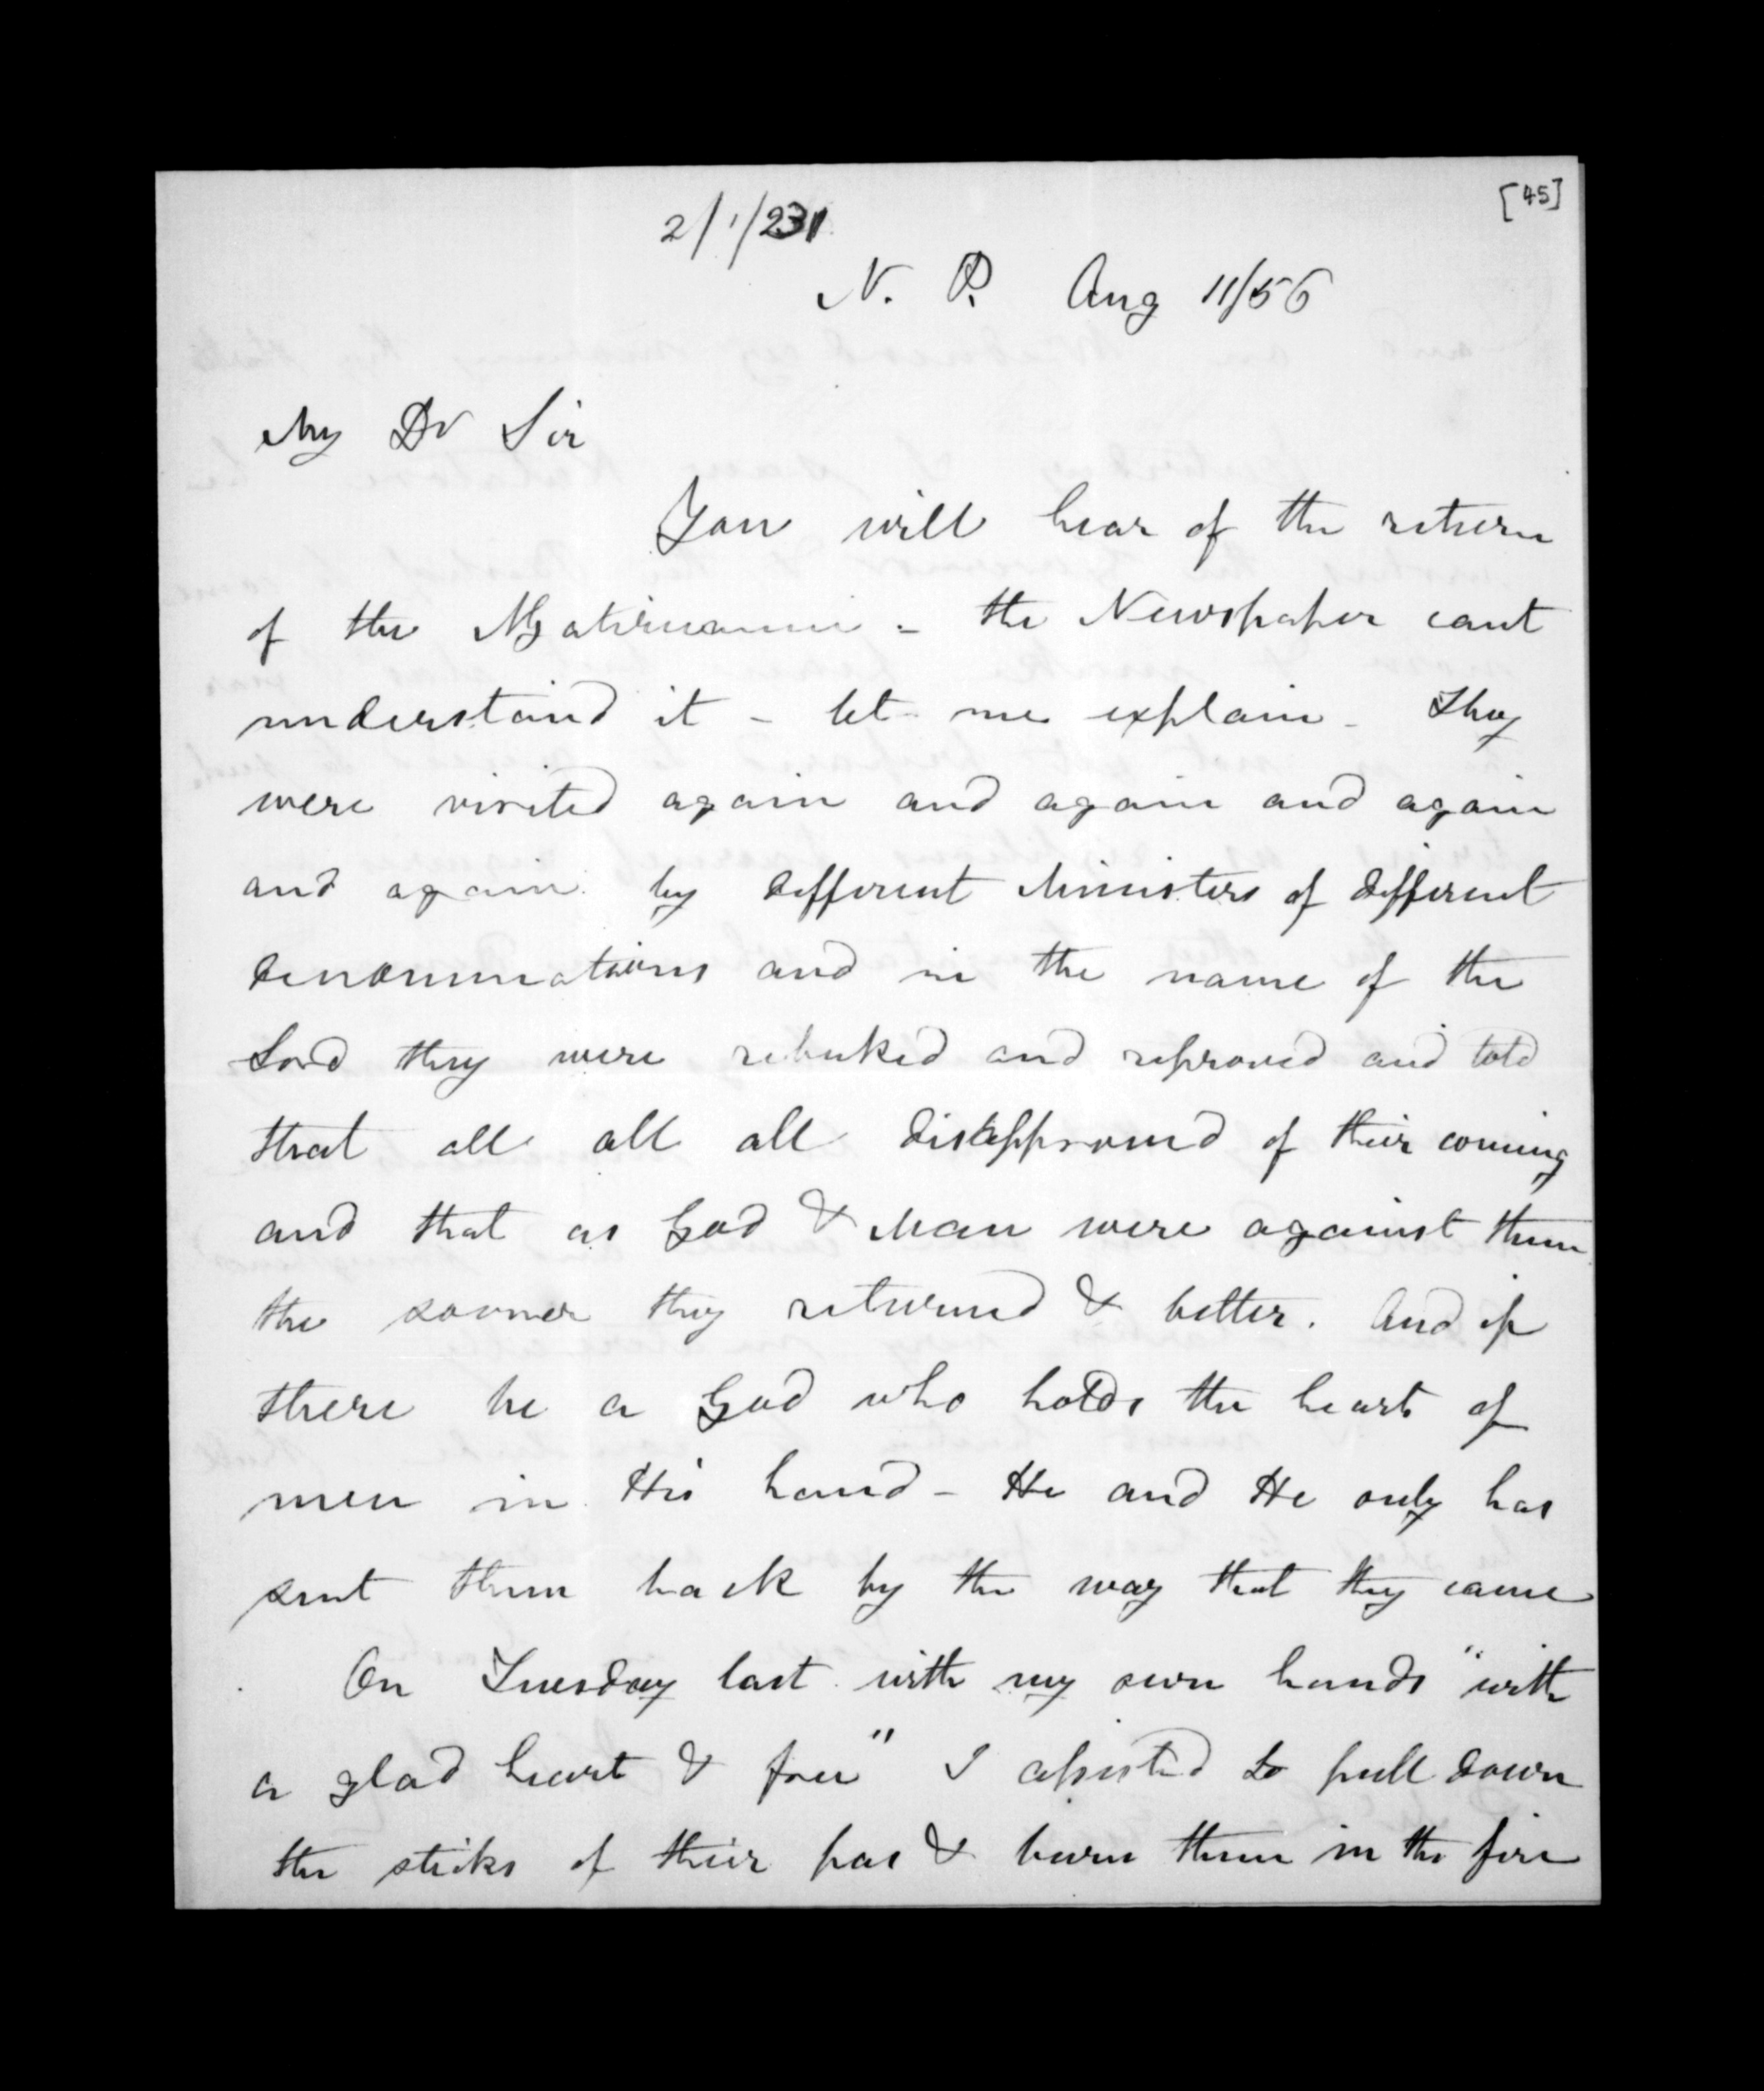 [45]
2/1/231
N. P. Aug 11/56
My Dr Sir
You will hear of the return
of the Ngatiruanui - the Newspaper cant
understand it - let me explain - They
were visited again and again and again
and again by different Ministers of different
denominations and in the name of the
Lord they were rebuked and reproved and told
that all all all disapproved of their coming
and that as God & Man were against them
the sooner they returned & better. And if
there be a God who holds the hearts of
men in His hand - He and He only has
sent them back by the way that they came
On Tuesday last with my own hands "with
a glad heart & free" I assisted to pull down
the sticks of their pas & burn them in the fire